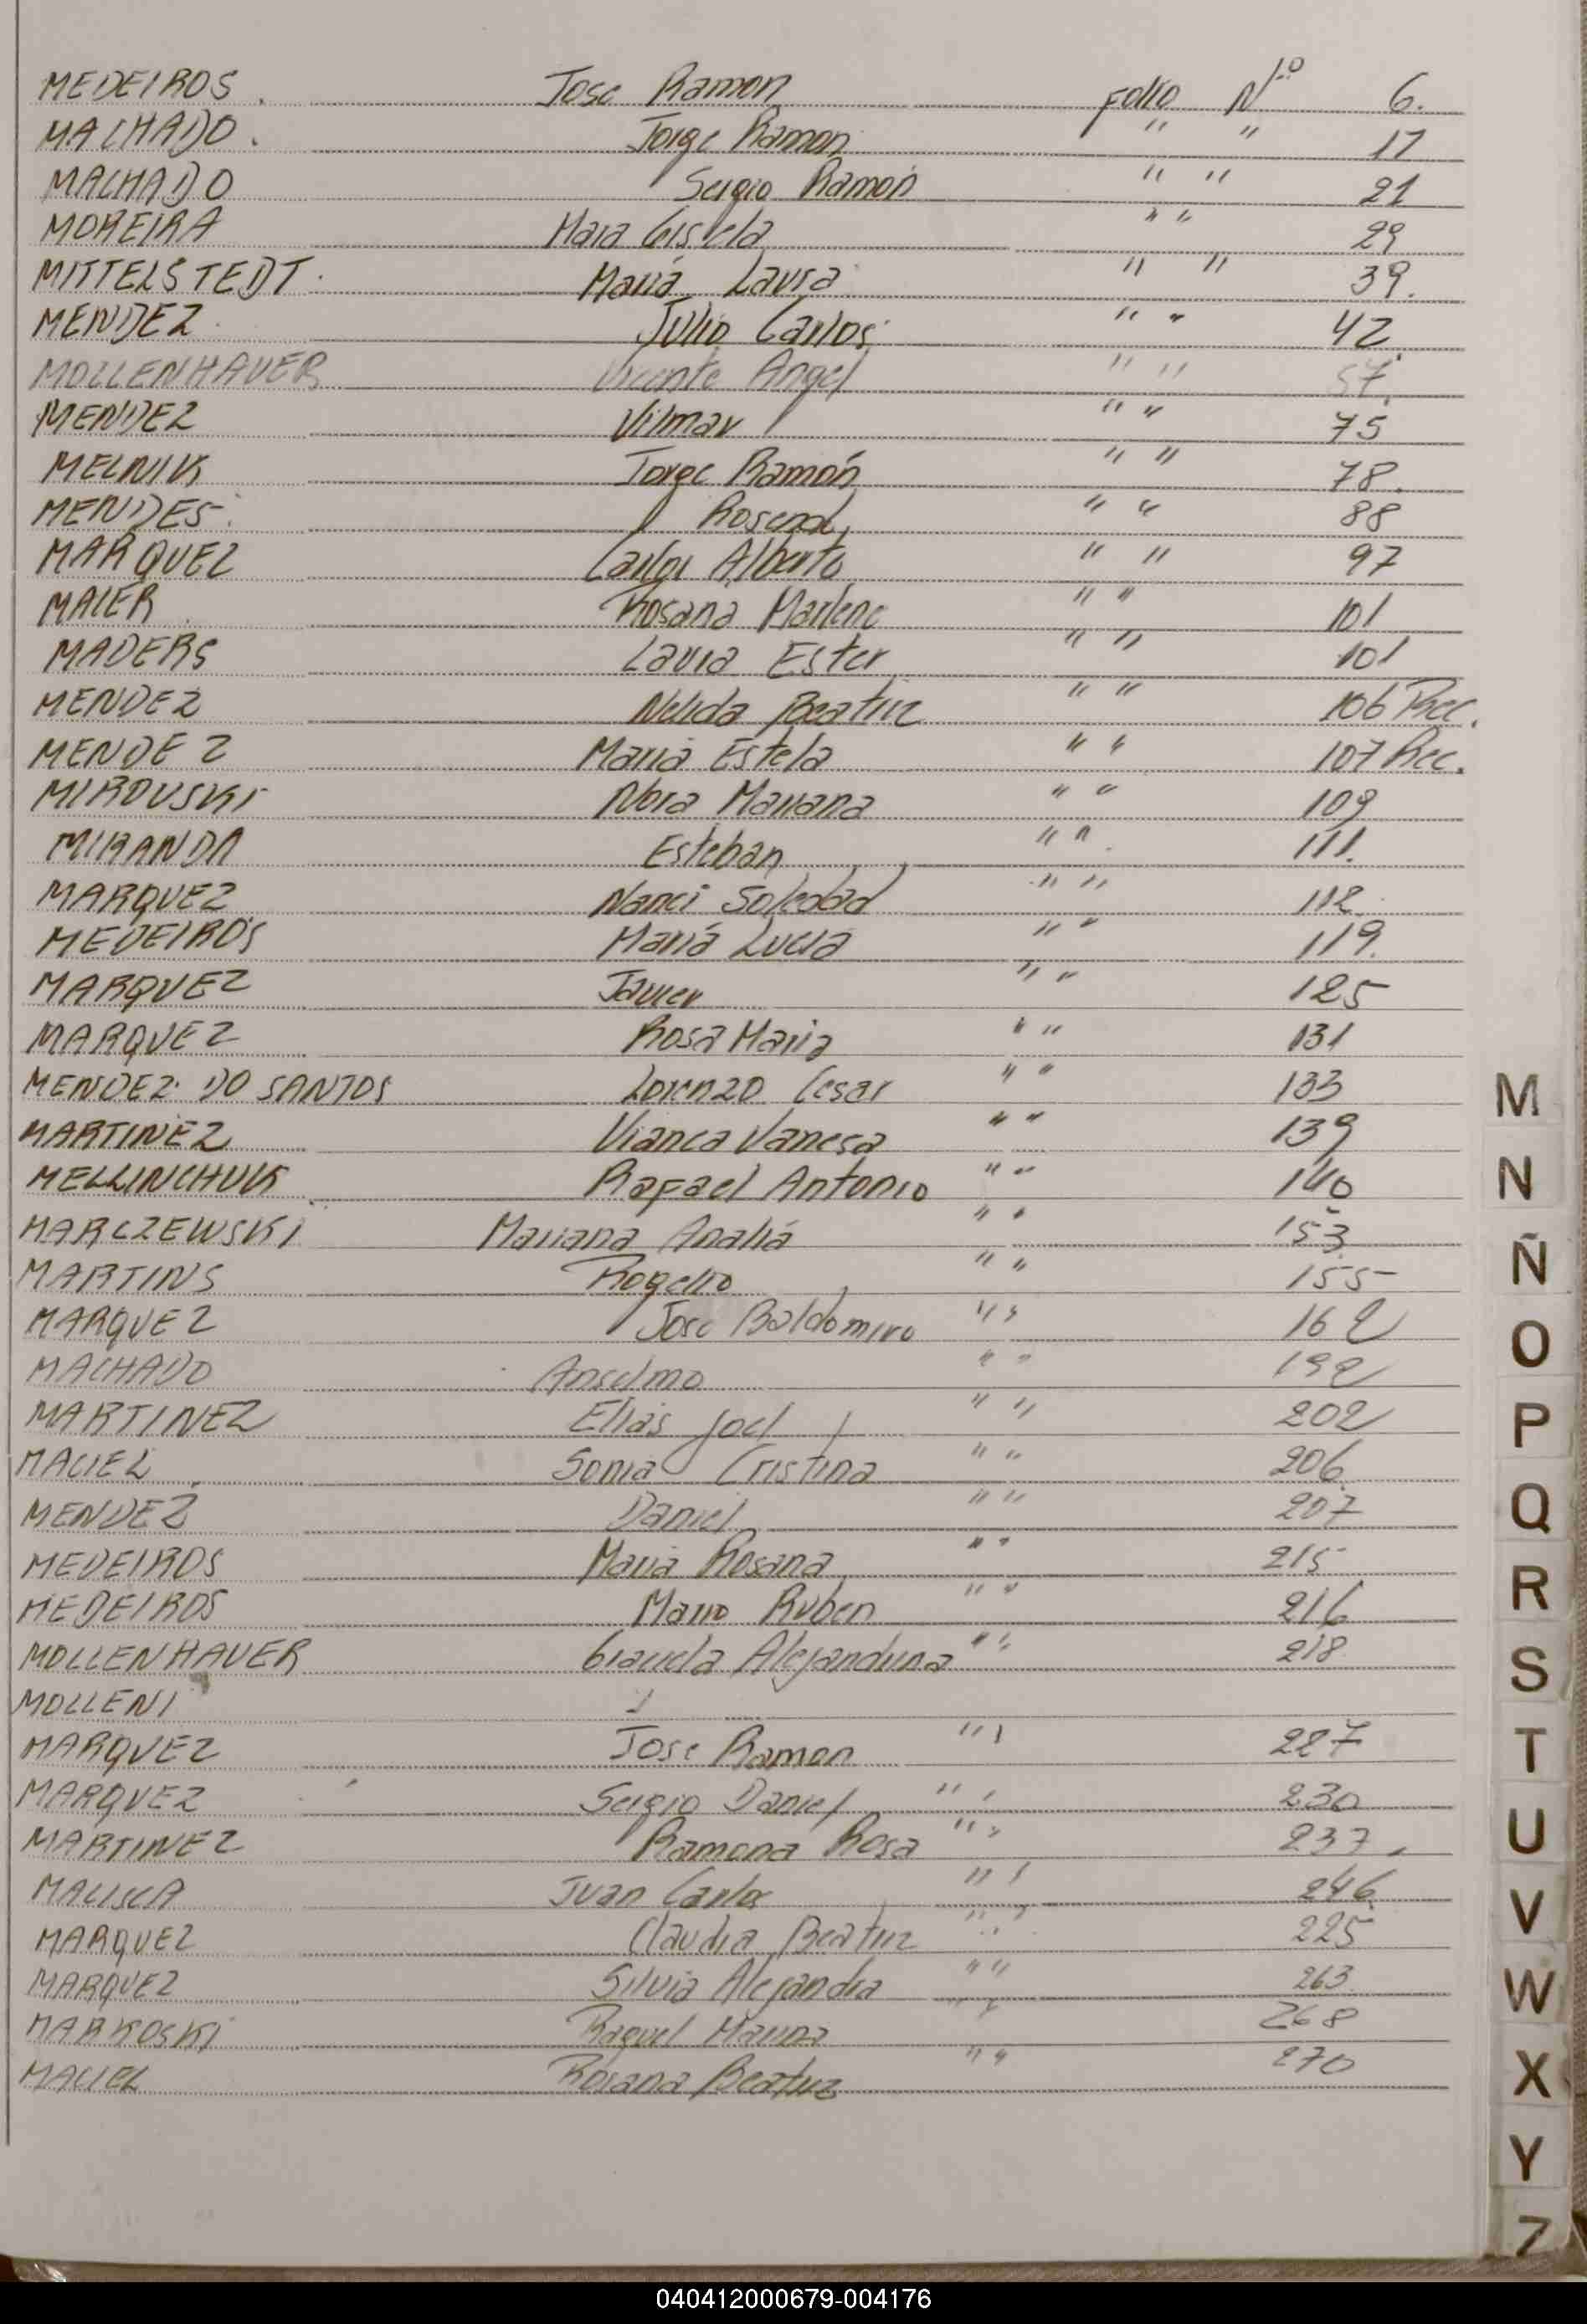 MEDEIROS. Jose Ramon Folio Nº 6.
MACHADO. Jorge Ramon " " 17
MACHADO Sergio Ramón " " 21
MOREIRA Mara Gisela " " 29
MITTELSTEDT. Maria Laura " " 39.
MENDEZ Julio Carlos " " 42.
MOLLENHAUER Vicente Angel " " 57.
MENDEZ Vilmar " " 75
MELNIK Jorge Ramón " " 78.
MENDES. Rosend " " 88
MARQUEZ Carlos Alberto " " 97
MAIER Rosana Marlene " " 101
MADERS Laura Ester " " 101
MENDEZ Nelida Beatriz " " 106 Rec.
MENDEZ Maria Estela " " 107 Rec.
MIROUSKI Nora Mariana " " 109
MIRANDA Esteban " " 111.
MARQUEZ Nanci Soledad " " 112
MEDEIROS María Lucia " " 119.
MARQUEZ Javier " " 125
MARQUEZ Rosa Maria " " 131
MENDEZ DO SANTOS Lorenzo Cesar " " 133
MARTINEZ Vianca Vanesa " " 139
MELLINCHUK Rafael Antonio " " 140
MARCZEWSKI Mariana Analiá " " 153
MARTINS Rogelio " " 155
MARQUEZ Jose Baldomiro " " 162
MACHADO Anselmo " " 192
MARTINEZ Elias Joel " " 202
MACIEL Sonia Cristina " " 206
MENDEZ Daniel " " 207
MEDEIROS Maria Rosana " " 215
MEDEIROS Mario Ruben " " 216
MOLLENHAUER Graciela Alejandrina " " 218
MOLLENI
MARQUEZ Jose Ramon " " 227
MARQUEZ Sergio Daniel " " 230
MARTINEZ Ramona Rosa " " 237.
MALISCA Juan Carlos " " 246.
MARQUEZ Claudia Beatriz " " 225
MARQUEZ Silvia Alejandra " " 263
MARKOSKI Raquel " " 268
MACIEL Rosana Beatriz " " 270
M
N
Ñ
O
P
Q
R
S
T
U
V
W
X
Y
Z
040412000679-004176